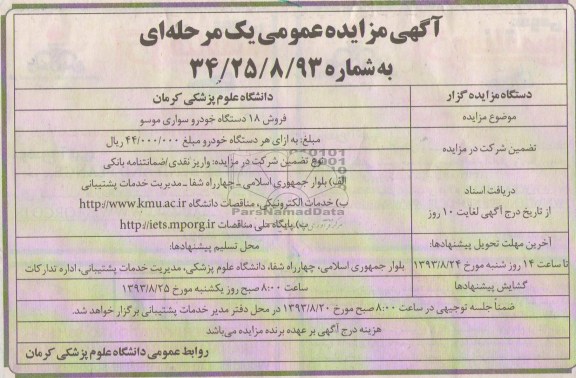 آگهی مزایده عمومی یک مرحله‌ای
به شماره ۳۴/۲۵/۸/۹۳
دستگاه مزایده گزار
دانشگاه علوم پزشکی کرمان
موضوع مزایده
فروش ۱۸ دستگاه خودرو سواری موسو
تضمین شرکت در مزایده
مبلغ: به ازای هر دستگاه خودرو مبلغ ۴۴/۰۰۰/۰۰۰ ریال
نوع تضمین شرکت در مزایده: واریز نقدی/ضمانتنامه بانکی
دریافت اسناد
از تاریخ درج آگهی لغایت ۱۰ روز
الف) بلوار جمهوری اسلامی - چهارراه شفا - مدیریت خدمات پشتیبانی
ب) خدمات الکترونیکی، مناقصات دانشگاه http://www.kmu.ac.ir
پ) پایگاه ملی مناقصات http://iets.mporg.ir
آخرین مهلت تحویل پیشنهادها:
تا ساعت ۱۴ روز شنبه مورخ ۱۳۹۳/۸/۲۴
محل تسلیم پیشنهادها:
بلوار جمهوری اسلامی، چهارراه شفا، دانشگاه علوم پزشکی، مدیریت خدمات پشتیبانی، اداره تدارکات
گشایش پیشنهادها
ساعت ۸:۰۰ صبح روز یکشنبه مورخ ۱۳۹۳/۸/۲۵
ضمناً جلسه توجیهی در ساعت ۸:۰۰ صبح مورخ ۱۳۹۳/۸/۲۰ در محل دفتر مدیر خدمات پشتیبانی برگزار خواهد شد.
هزینه درج آگهی بر عهده برنده مزایده می‌باشد
روابط عمومی دانشگاه علوم پزشکی کرمان
ParsNamadData